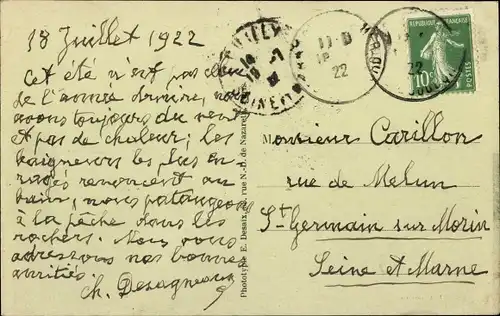 18 Juillet 1922
Cet été n'est pas celui
de l'année dernière, nous
avons toujours du vent
et pas de chaleur; les
baigneurs les plus en-
ragés renoncent au
bain, nous pataugeons
à la pêche dans les
rochers. Nous vous
adressons nos bonnes
amitiés.
Ch. Desagneaux
Phototypie E. Desaix, rue N.-D. de Nazareth
22
22
REPUBLIQUE FRANÇAISE
10c
POSTES
Monsieur Carillon
rue de Melun
St Germain sur Morin
Seine et Marne